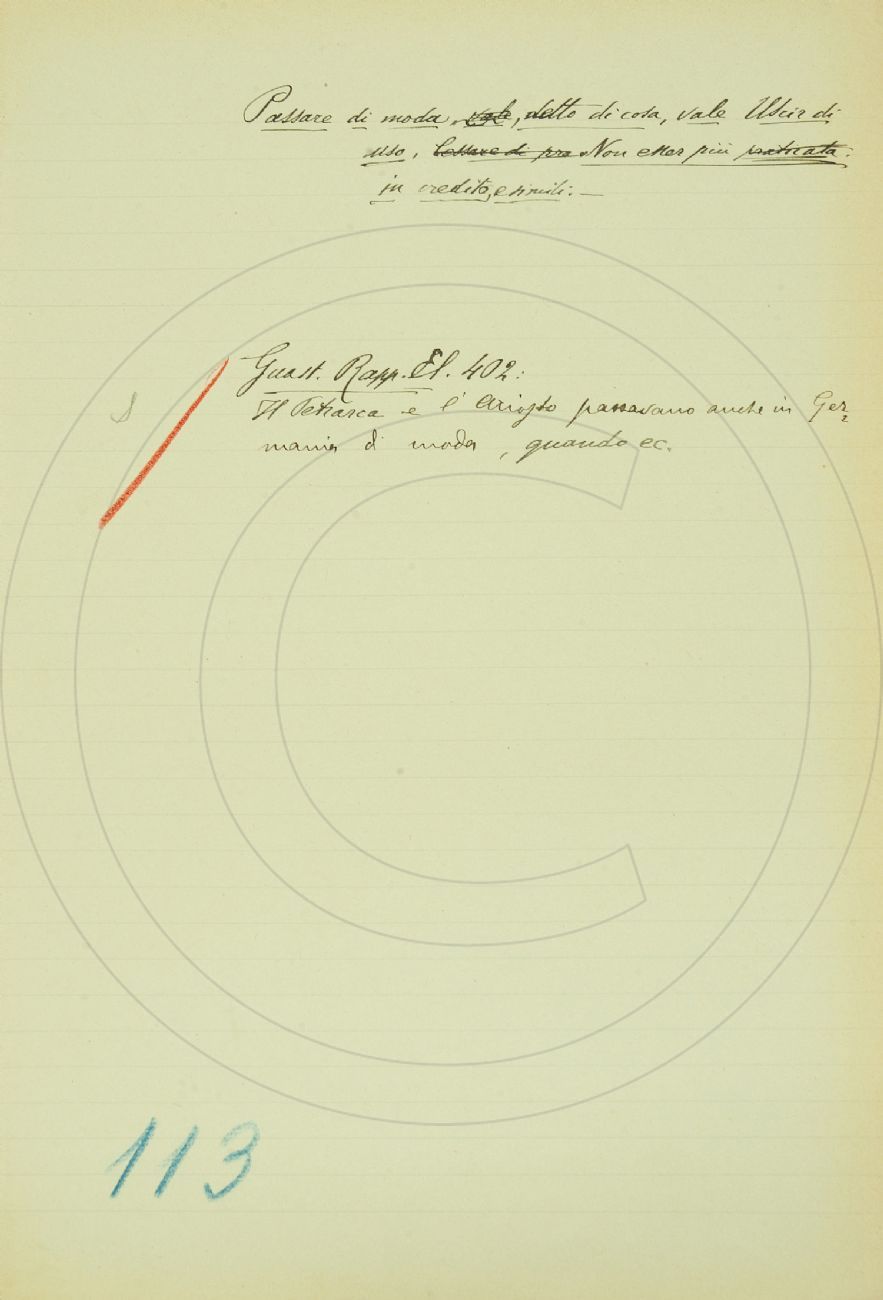 Passare di moda, vale, detto di cosa, vale Uscir di
uso, Cessare di pra Non esser più praticata:
in credito, e simili: —
Guast. Rapp. El. 402:
Il Petrarca e l'Ariosto passavano anche in Ger=
mania di moda, quando ec.
113